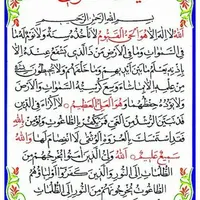 بِسْمِ اللهِ الرَّحْمٰنِ الرَّحِيمِ
اَللهُ لَا إِلٰهَ إِلَّا هُوَ الْحَيُّ الْقَيُّومُ لَا تَأْخُذُهُ سِنَةٌ وَلَا نَوْمٌ لَهُ مَا
فِي السَّمٰوَاتِ وَمَا فِي الْأَرْضِ مَنْ ذَا الَّذِي يَشْفَعُ عِنْدَهُ إِلَّا
بِإِذْنِهِ يَعْلَمُ مَا بَيْنَ أَيْدِيهِمْ وَمَا خَلْفَهُمْ وَلَا يُحِيطُونَ بِشَيْءٍ
مِنْ عِلْمِهِ إِلَّا بِمَا شَاءَ وَسِعَ كُرْسِيُّهُ السَّمٰوَاتِ وَالْأَرْضَ
وَلَا يَؤُدُهُ حِفْظُهُمَا وَهُوَ الْعَلِيُّ الْعَظِيمُ لَا إِكْرَاهَ فِي الدِّينِ
قَدْ تَبَيَّنَ الرُّشْدُ مِنَ الْغَيِّ فَمَنْ يَكْفُرْ بِالطَّاغُوتِ وَيُؤْمِنْ بِاللهِ
فَقَدِ اسْتَمْسَكَ بِالْعُرْوَةِ الْوُثْقَى لَا انْفِصَامَ لَهَا وَاللهُ
سَمِيعٌ عَلِيمٌ اَللهُ وَلِيُّ الَّذِينَ آمَنُوا يُخْرِجُهُمْ مِنَ
الظُّلُمَاتِ إِلَى النُّورِ وَالَّذِينَ كَفَرُوا أَوْلِيَاؤُهُمُ
الطَّاغُوتُ يُخْرِجُونَهُمْ مِنَ النُّورِ إِلَى الظُّلُمَاتِ